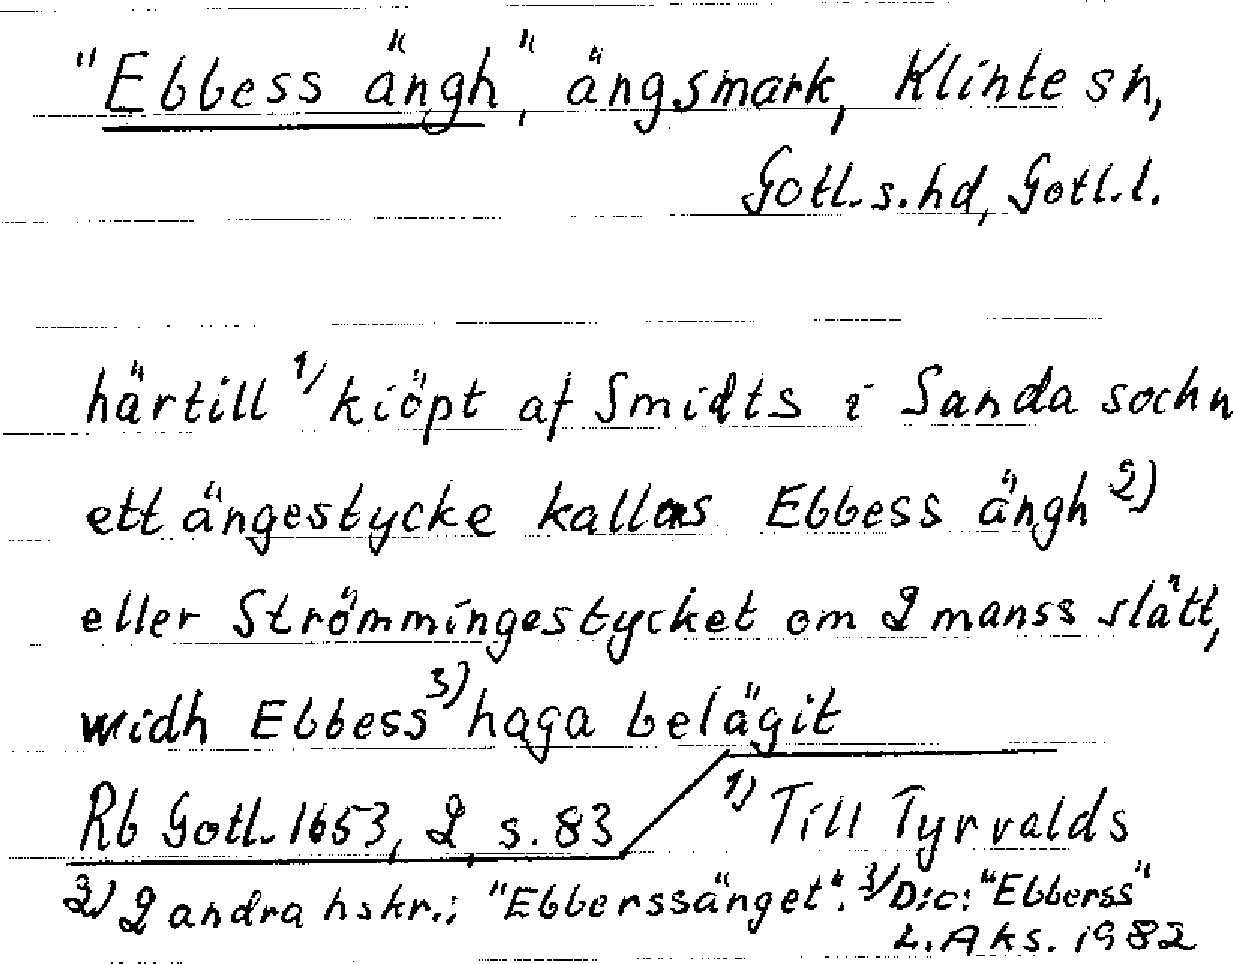 "Ebbess ängh", ängsmark, Klinte sn,
Gotl.s.hd, Gotl.l.
härtill 1/ kiöpt af Smidts i Sanda sochn
ett ängestycke kallas Ebbess ängh 2)
eller Strömmingestycket om 2 manss slätt,
widh Ebbess 3) haga belägit
Rb Gotl. 1653, 2, s. 83 1) Till Tyrvalds
2) 2 andra hskr.: "Ebberssänget". 3/ D:o: "Ebberss"
L. Aks. 1982